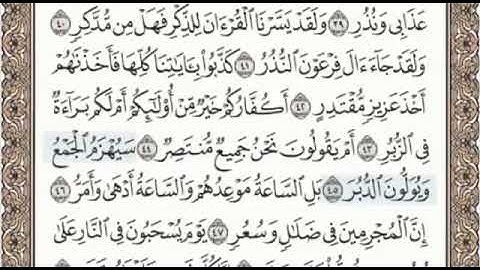 عَذَابِى وَنُذُرِ ٣٩ وَلَقَدْ يَسَّرْنَا ٱلْقُرْءَانَ لِلذِّكْرِ فَهَلْ مِن مُّدَّكِرٍ ٤٠
وَلَقَدْ جَآءَ ءَالَ فِرْعَوْنَ ٱلنُّذُرُ ٤١ كَذَّبُوا۟ بِـَٔايَـٰتِنَا كُلِّهَا فَأَخَذْنَـٰهُمْ
أَخْذَ عَزِيزٍ مُّقْتَدِرٍ ٤٢ أَكُفَّارُكُمْ خَيْرٌ مِّنْ أُو۟لَـٰٓئِكُمْ أَمْ لَكُم بَرَآءَةٌ
فِى ٱلزُّبُرِ ٤٣ أَمْ يَقُولُونَ نَحْنُ جَمِيعٌ مُّنتَصِرٌ ٤٤ سَيُهْزَمُ ٱلْجَمْعُ
وَيُوَلُّونَ ٱلدُّبُرَ ٤٥ بَلِ ٱلسَّاعَةُ مَوْعِدُهُمْ وَٱلسَّاعَةُ أَدْهَىٰ وَأَمَرُّ ٤٦
إِنَّ ٱلْمُجْرِمِينَ فِى ضَلَـٰلٍ وَسُعُرٍ ٤٧ يَوْمَ يُسْحَبُونَ فِى ٱلنَّارِ عَلَىٰ